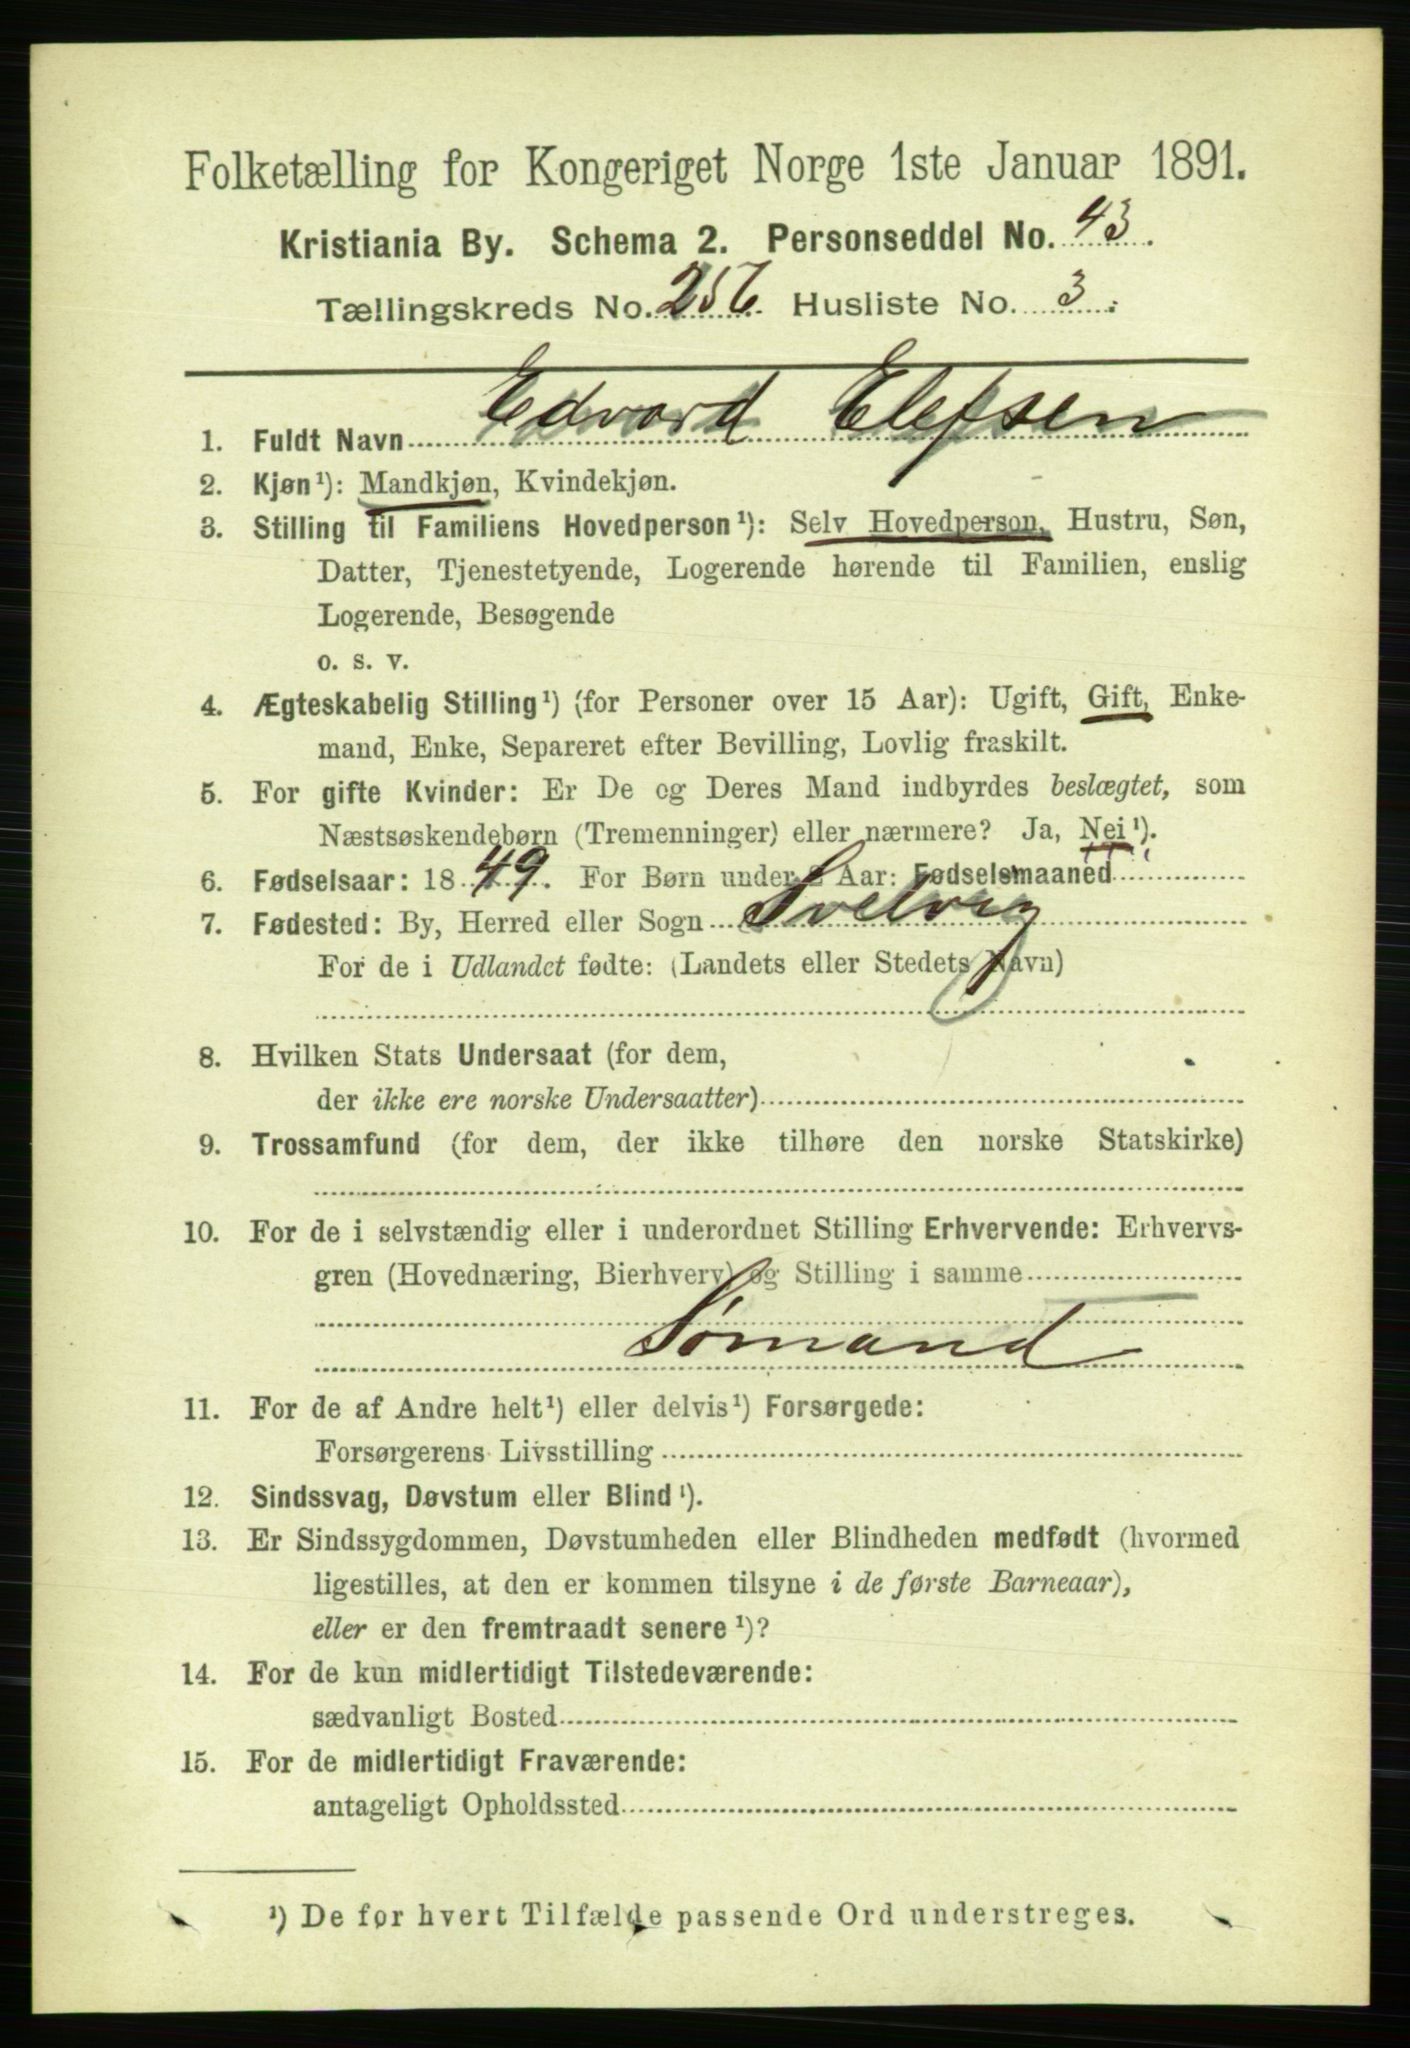 Folketælling for Kongeriget Norge 1ste Januar 1891.
Kristiania By. Schema 2. Personseddel No. 43.
Tællingskreds No. 256 Husliste No. 3.
1. Fuldt Navn Edvard Elefsen
2. Kjøn¹): Mandkjøn, Kvindekjøn.
3. Stilling til Familiens Hovedperson¹): Selv Hovedperson, Hustru, Søn,
Datter, Tjenestetyende, Logerende hørende til Familien, enslig
Logerende, Besøgende
o. s. v.
4. Ægteskabelig Stilling¹) (for Personer over 15 Aar): Ugift, Gift, Enke-
mand, Enke, Separeret efter Bevilling, Lovlig fraskilt.
5. For gifte Kvinder: Er De og Deres Mand indbyrdes beslægtet, som
Næstsøskendebørn (Tremenninger) eller nærmere? Ja, Nei¹).
6. Fødselsaar: 1849. For Børn under 2 Aar: Fødselsmaaned
7. Fødested: By, Herred eller Sogn Svelvig
For de i Udlandet fødte: (Landets eller Stedets Navn)
8. Hvilken Stats Undersaat (for dem,
der ikke ere norske Undersaatter)
9. Trossamfund (for dem, der ikke tilhøre den norske Statskirke)
10. For de i selvstændig eller i underordnet Stilling Erhvervende: Erhvervs-
gren (Hovednæring, Bierhverv) og Stilling i samme
Sømand
11. For de af Andre helt¹) eller delvis¹) Forsørgede:
Forsørgerens Livsstilling
12. Sindssvag, Døvstum eller Blind¹).
13. Er Sindssygdommen, Døvstumheden eller Blindheden medfødt (hvormed
ligestilles, at den er kommen tilsyne i de første Barneaar),
eller er den fremtraadt senere¹)?
14. For de kun midlertidigt Tilstedeværende:
sædvanligt Bosted
15. For de midlertidigt Fraværende:
antageligt Opholdssted
¹) De for hvert Tilfælde passende Ord understreges.